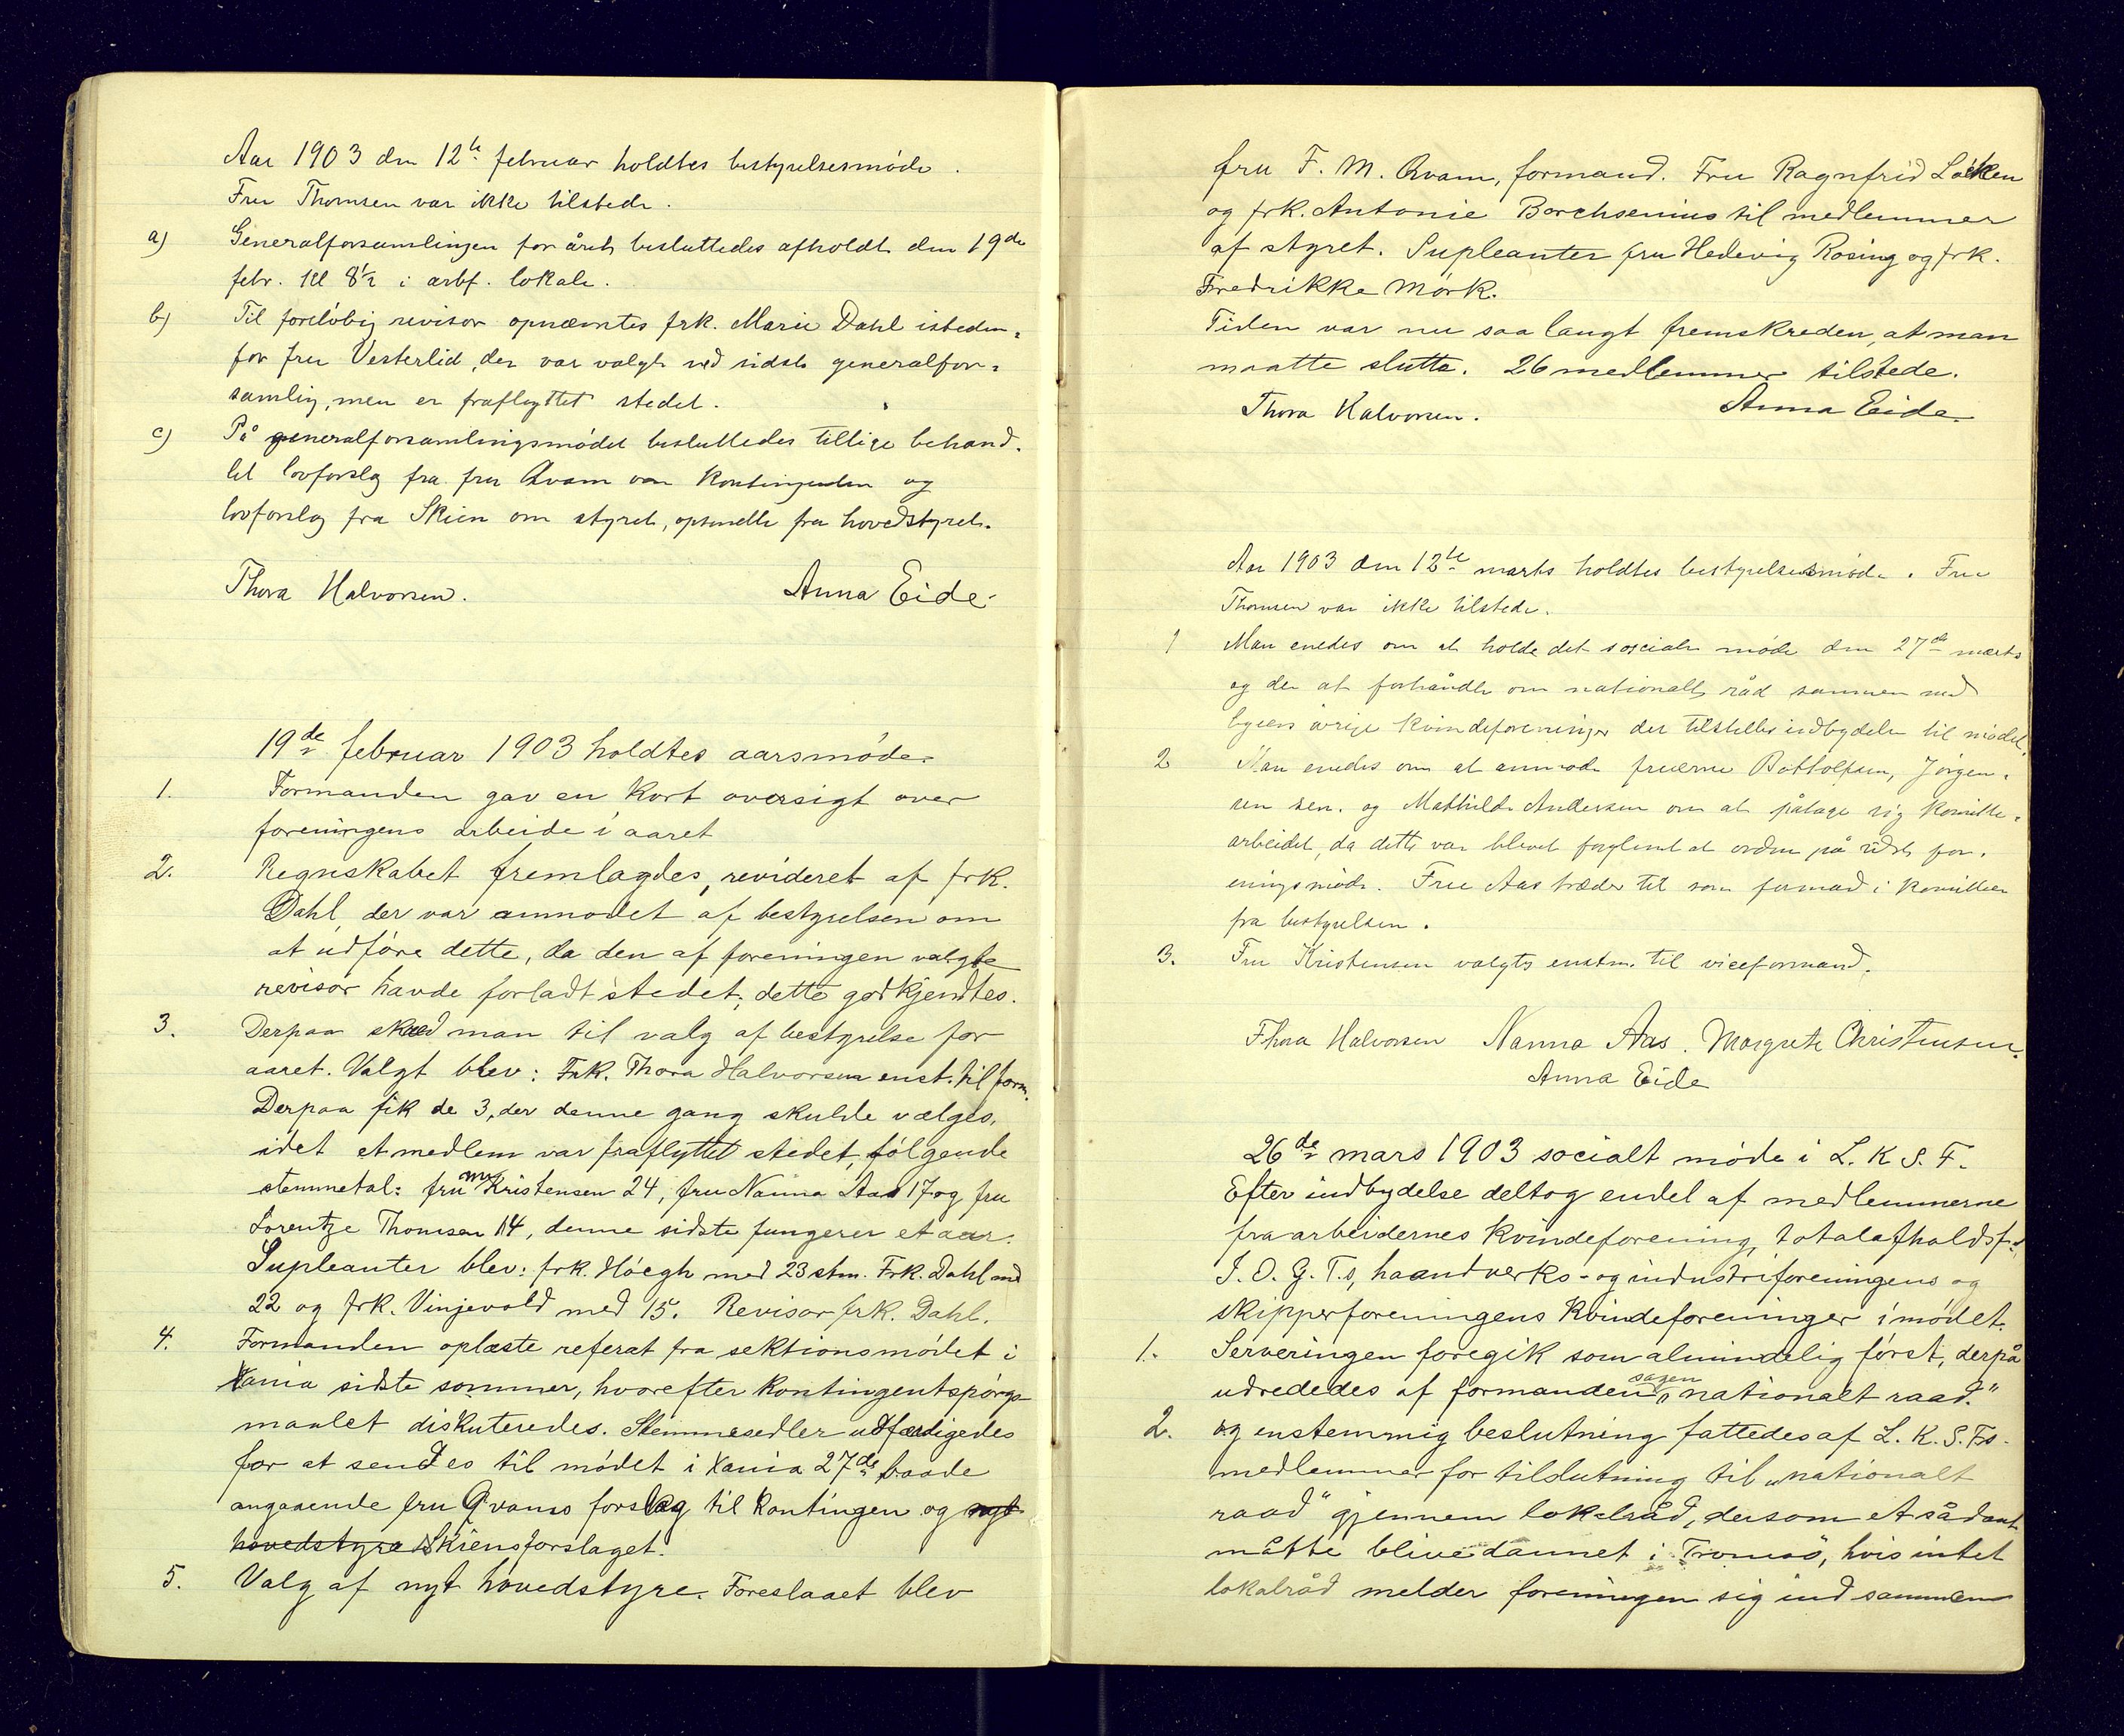 Aar 1903 den 12te februar holdtes bestyrelsesmøde.
Fru Thomsen var ikke tilstede.
a) Generalforsamlingen for året besluttedes afholdt den 19de
febr. kl 8 1/2 i arbf. lokale.
b) Til foreløbig revisor opnævntes frk. Marie Dahl isteden=
for fru Vesterlid, der var valgt ved sidste generalfor=
samling, men er fraflyttet stedet.
c) På generalforsamlingsmødet besluttedes tillige behand=
let lovforslag fra fru Qvam om kontingenten og
lovforslag fra Skien om styret, opsendte fra hovedstyret.
Thora Halvorsen. Anna Eide
19de februar 1903 holdtes aarsmøde.
1. Formanden gav en kort oversigt over
foreningens arbeide i aaret
2. Regnskabet fremlagdes, revideret af frk.
Dahl, der var anmodet af bestyrelsen om
at udføre dette, da den af foreningen valgte
revisor havde forladt stedet; dette godkjendtes.
3. Derpaa skred man til valg af bestyrelse for
aaret. Valgt blev: Frk. Thora Halvorsen enst. til form.
Derpaa fik de 3, der denne gang skulde vælges,
idet et medlem var fraflyttet stedet, følgende
stemmetal: fru M. Kristensen 24, fru Nanna Aas 17 og fru
Lorentze Thomsen 14, denne sidste fungerer et aar.
Supleanter blev: frk. Høegh med 23 stm. Frk. Dahl med
22 og frk. Vinjevold med 15. Revisor frk. Dahl.
4. Formanden oplæste referat fra sektionsmødet i
Xania sidste sommer, hvorefter kontingentspørgs-
maalet diskuteredes. Stemmesedler udfærdigedes
for at sendes til mødet i Xania 27de baade
angaaende fru Qvams forslag til kontingen og nyt
hovedstyre Skiensforslaget.
5. Valg af nyt hovedstyre. Foreslaaet blev
fru F. M. Qvam, formand. Fru Ragnfrid Løkken
og frk. Antonie Borchsenius til medlemmer
af styret. Supleanter fru Hedevig Rosing og frk.
Fredrikke Mørk.
Tiden var nu saa langt fremskreden, at man
maatte slutte. 26 medlemmer tilstede.
Thora Halvorsen. Anna Eide
Aar 1903 den 12te marts holdtes bestyrelsesmøde. Fru
Thomsen var ikke tilstede.
1 Man enedes om at holde det sociale møde den 27de marts
og der at forhandle om nationalt råd sammen med
byens øvrige kvindeforeninger der tilstilles indbydelse til mødet.
2 Man enedes om at anmode fruerne Bottolfsen, Jørgen=
sen sen. og Mathilde Andersen om at påtage sig komitte=
arbeidet, da dette var blevet forglemt at ordne på sidste for=
eningsmøde. Fru Aas træder til som formand i komitteen
fra bestyrelsen.
3. Fru Kristensen valgtes enstm. til viceformand.
Thora Halvorsen Nanna Aas. Margrete Christensen.
Anna Eide
26de mars 1903 socialt møde i L. K. S. F.
Efter indbydelse deltog endel af medlemmerne
fra arbeidernes kvindeforening, totalafholdsf.s
I. O. G. T.s, haandverks- og industriforeningens og
skipperforeningens kvindeforeninger i mødet.
1. Serveringen foregik som almindelig først, derpå
udrededes af formanden sagen „nationalt raad."
2. og enstemmig beslutning fattedes af L. K. S. Fs.
medlemmer for tilslutning til „nationalt
raad" gjennem lokalråd, dersom et sådant
måtte blive dannet i Tromsø, hvis intet
lokalråd melder foreningen sig ind sammen